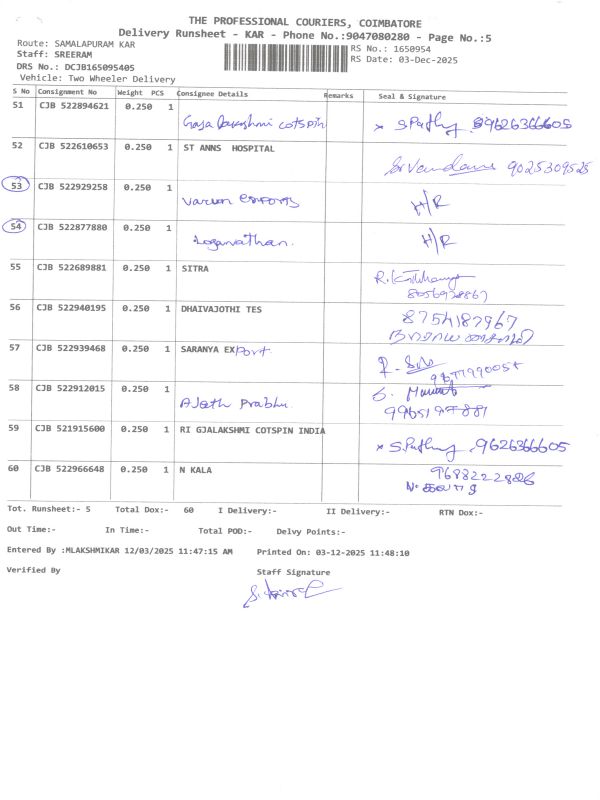 THE PROFESSIONAL COURIERS, COIMBATORE
Delivery Runsheet - KAR - Phone No.:9047080280 - Page No.:5
Route: SAMALAPURAM KAR
Staff: SREERAM
DRS No.: DCJB165095405
Vehicle: Two Wheeler Delivery
RS No.: 1650954
RS Date: 03-Dec-2025
S No Consignment No Weight PCS Consignee Details Remarks Seal & Signature
51 CJB 522894621 0.250 1 cotspin x S.Pathy 9626366605
52 CJB 522610653 0.250 1 ST ANNS HOSPITAL 9025309525
53 CJB 522929258 0.250 1 Varun exports H/R
54 CJB 522877880 0.250 1 Loganathan. H/R
55 CJB 522689881 0.250 1 SITRA
56 CJB 522940195 0.250 1 DHAIVAJOTHI TES 8754187967
57 CJB 522939468 0.250 1 SARANYA EXPort
58 CJB 522912015 0.250 1 Ajeth Prabhu.
59 CJB 521915600 0.250 1 RI GJALAKSHMI COTSPIN INDIA x S.Pathy 9626366605
60 CJB 522966648 0.250 1 N KALA
Tot. Runsheet:- 5 Total Dox:- 60 I Delivery:- II Delivery:- RTN Dox:-
Out Time:- In Time:- Total POD:- Delvy Points:-
Entered By :MLAKSHMIKAR 12/03/2025 11:47:15 AM Printed On: 03-12-2025 11:48:10
Verified By Staff Signature